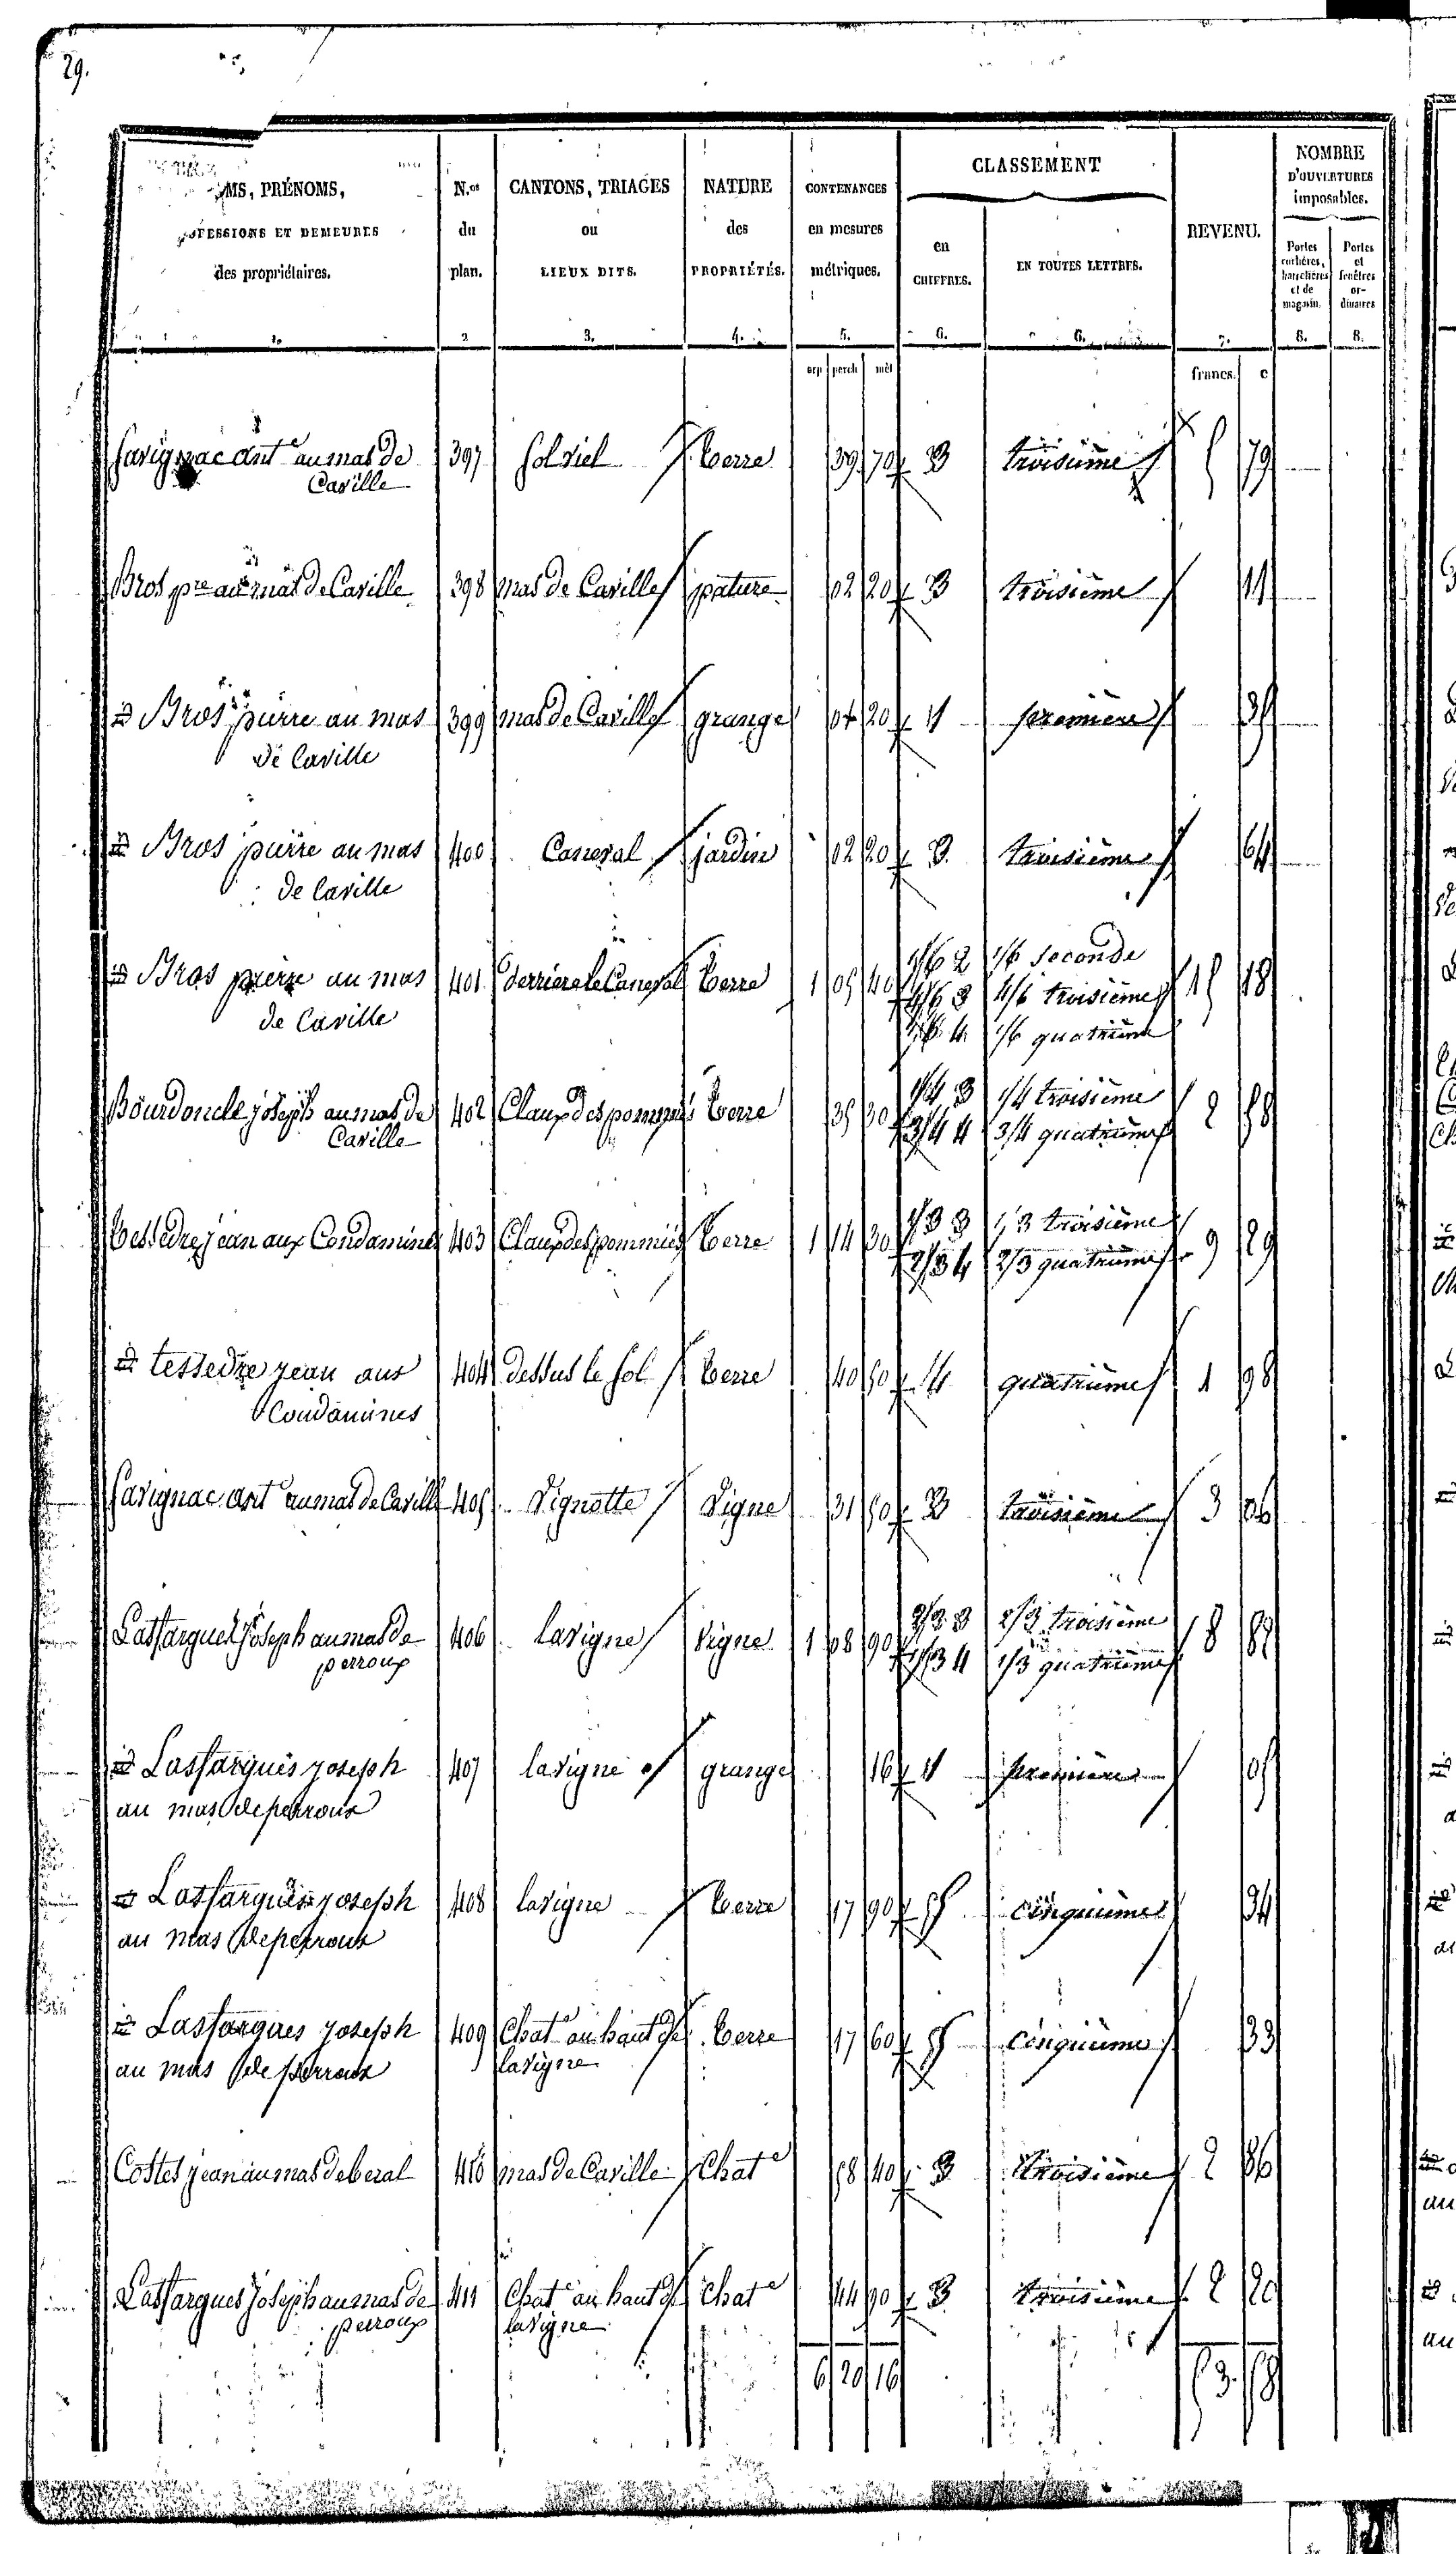 29.
MS, PRÉNOMS,
OFESSIONS ET DEMEURES
des propriétaires.
N.os
du
plan.
CANTONS, TRIAGES
ou
LIEUX DITS.
NATURE
des
PROPRIÉTÉS.
CONTENANCES
en mesures
métriques.
CLASSEMENT
en
CHIFFRES.
EN TOUTES LETTRES.
REVENU.
NOMBRE
D'OUVERTURES
imposables.
Portes
cochères,
bâtardières
et de
magasin.
Portes
et
fenêtres
or-
dinaires
1. 2 3. 4. 5. 6. 6. 7. 8. 8.
arp perch mèt francs. c
Savignac ant.e au mas de 397 Solviel terre 39 70 3 troisième 5 79
Caville
Bros p.re au mas de Caville 398 mas de Caville pature 02 20 3 troisième 11
id Bros pierre au mas 399 mas de Caville grange 04 20 1 première 35
de Caville
id Bros pierre au mas 400 Caneval jardin 02 20 3 troisième 64
de Caville
id Bros pierre au mas 401 derrière le Caneval terre 1 05 40 1/6 2 1/6 seconde 15 18
4/6 3 4/6 troisième
de Caville 1/6 4 1/6 quatrième
Bourdoncle joseph au mas de 402 Claux des pommiés terre 35 30 1/4 3 1/4 troisième 2 58
Caville 3/4 4 3/4 quatrième
tessedre jean aux Condamines 403 Claux des pommiés terre 1 14 30 1/3 3 1/3 troisième 9 29
2/3 4 2/3 quatrième
id tessedre jean aux 404 dessus le sol terre 40 50 4 quatrième 1 98
Condamines
Savignac ant.e au mas de Caville 405 Vignotte Vigne 31 50 3 troisième 3 06
Lassargues joseph au mas de 406 lavigne Vigne 1 08 90 2/3 3 2/3 troisième 8 82
perroux 1/3 4 1/3 quatrième
id Lassargues joseph 407 lavigne grange 16 1 première 05
au mas de perroux
id Lassargues joseph 408 lavigne terre 17 90 5 cinquième 34
au mas de perroux
id Lassargues joseph 409 Chat.e au haut de terre 17 60 5 cinquième 33
au mas de perroux lavigne
Costes jean au mas de beral 410 mas de Caville Chat.e 58 40 3 troisième 2 86
Lassargues joseph au mas de 411 Chat.e au haut de Chat.e 44 90 3 troisième 2 20
perroux lavigne
6 20 16 53 58